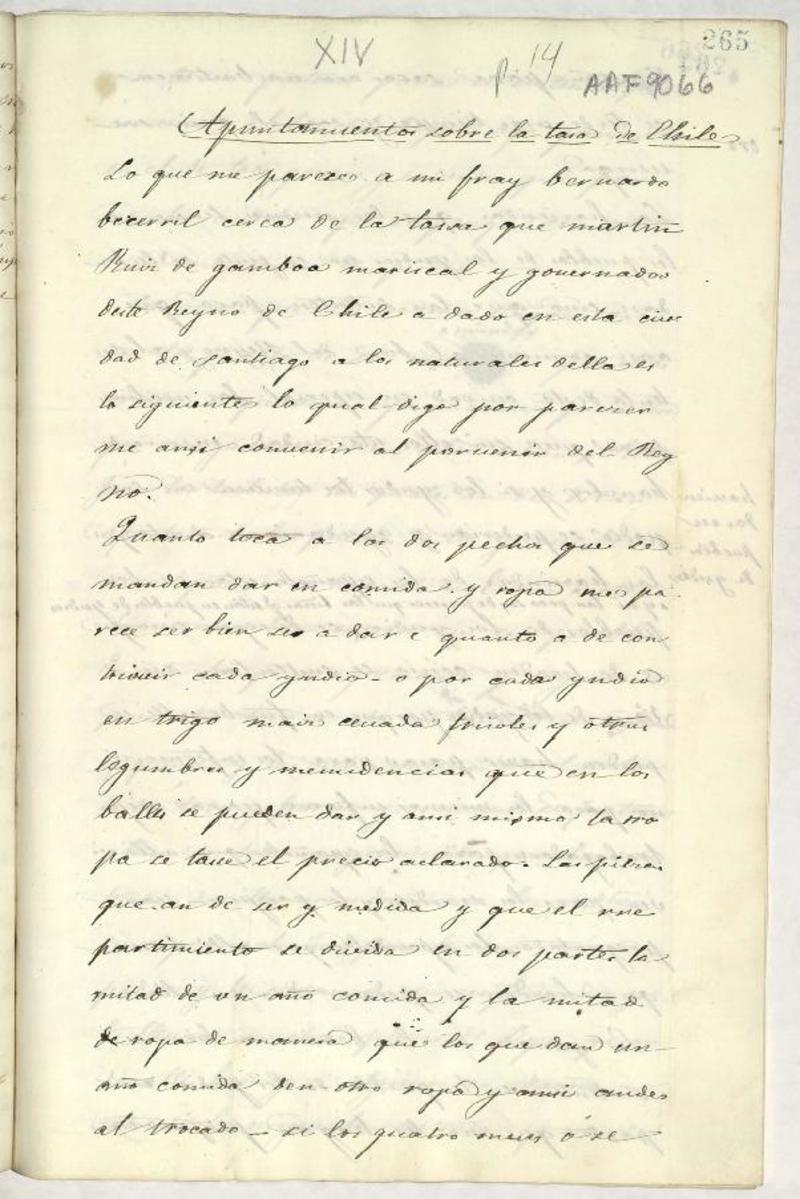 265
XIV
p. 14
AAF9066
Apuntamientos sobre la tasa de Chile
Lo que me parece a mi fray bernardo
bezerril cerca de la tassa que martin
Ruiz de gamboa mariscal y governador
deste Reyno de Chile a dado en esta ciu
dad de santiago a los naturales della es
lo siguiente lo qual digo por parecer
me ansi convenir al porvenir del Rey
no.
Quanto toca a los dos pechos que se
mandan dar en comida y ropa me pa
rece ser bien se a dar e quanto a de con
trivuir cada yndio - o por cada yndio
en trigo maiz cevada frisoles y otras
legumbres y menudencias que en los
balles se pueden dar y ansi mismo la rro
pa se tase el precio aclarado. Las piezas
que an de ser y medida y que el rre
partimiento se divida en dos partes la
mitad de un año comida y la mitad
de ropa de manera que los que dan un
año comida den otro ropa y ansi anden
al trocado - si los quatro meses o se